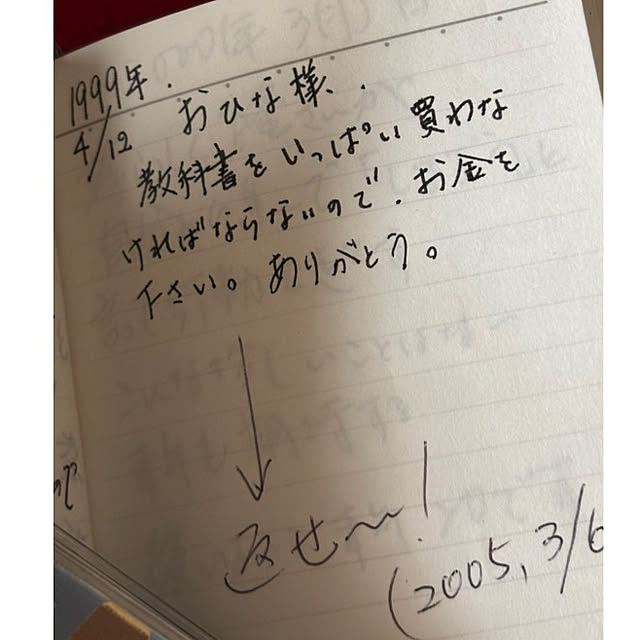 1999年.
4/12 おひな様.
教科書をいっぱい買わな
ければならないので.お金を
下さい。ありがとう。
返せ〜!
(2005, 3/6